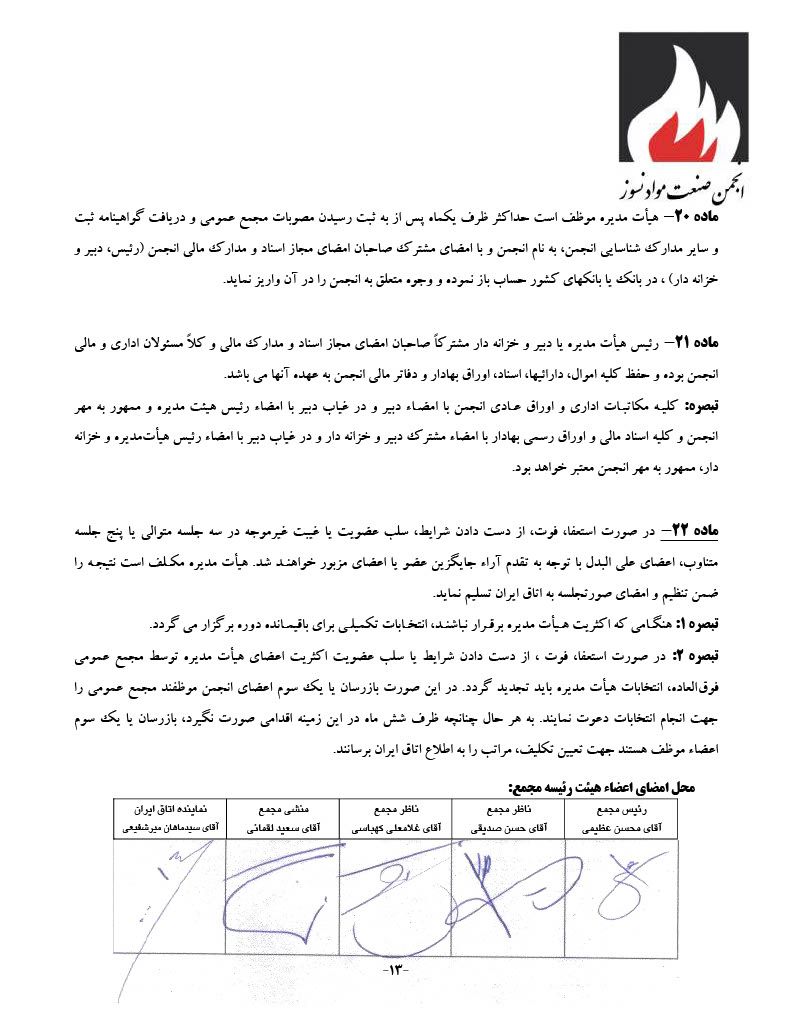 انجمن صنعت مواد نسوز
ماده ۲۰– هیأت مدیره موظف است حداکثر ظرف یکماه پس از به ثبت رسیدن مصوبات مجمع عمومی و دریافت گواهینامه ثبت
و سایر مدارک شناسایی انجمن، به نام انجمن و با امضای مشترک صاحبان امضای مجاز اسناد و مدارک مالی انجمن (رئیس، دبیر و
خزانه دار) ، در بانک یا بانکهای کشور حساب باز نموده و وجوه متعلق به انجمن را در آن واریز نماید.
ماده ۲۱– رئیس هیأت مدیره یا دبیر و خزانه دار مشترکاً صاحبان امضای مجاز اسناد و مدارک مالی و کلاً مسئولان اداری و مالی
انجمن بوده و حفظ کلیه اموال، دارائیها، اسناد، اوراق بهادار و دفاتر مالی انجمن به عهده آنها می باشد.
تبصره: کلیه مکاتبات اداری و اوراق عادی انجمن با امضاء دبیر و در غیاب دبیر با امضاء رئیس هیئت مدیره و ممهور به مهر
انجمن و کلیه اسناد مالی و اوراق رسمی بهادار با امضاء مشترک دبیر و خزانه دار و در غیاب دبیر با امضاء رئیس هیأت‌مدیره و خزانه
دار، ممهور به مهر انجمن معتبر خواهد بود.
ماده ۲۲– در صورت استعفا، فوت، از دست دادن شرایط، سلب عضویت یا غیبت غیرموجه در سه جلسه متوالی یا پنج جلسه
متناوب، اعضای علی البدل با توجه به تقدم آراء جایگزین عضو یا اعضای مزبور خواهند شد. هیأت مدیره مکلف است نتیجه را
ضمن تنظیم و امضای صورتجلسه به اتاق ایران تسلیم نماید.
تبصره ۱: هنگامی که اکثریت هیأت مدیره برقرار نباشند، انتخابات تکمیلی برای باقیمانده دوره برگزار می گردد.
تبصره ۲: در صورت استعفا، فوت ، از دست دادن شرایط یا سلب عضویت اکثریت اعضای هیأت مدیره توسط مجمع عمومی
فوق‌العاده، انتخابات هیأت مدیره باید تجدید گردد. در این صورت بازرسان یا یک سوم اعضای انجمن موظفند مجمع عمومی را
جهت انجام انتخابات دعوت نمایند. به هر حال چنانچه ظرف شش ماه در این زمینه اقدامی صورت نگیرد، بازرسان یا یک سوم
اعضاء موظف هستند جهت تعیین تکلیف، مراتب را به اطلاع اتاق ایران برسانند.
محل امضای اعضاء هیئت رئیسه مجمع:
رئیس مجمع ناظر مجمع ناظر مجمع منشی مجمع نماینده اتاق ایران
آقای محسن عظیمی آقای حسن صدیقی آقای غلامعلی کهباسی آقای سعید لقمانی آقای سیدماهان میرشفیعی
-۱۳-